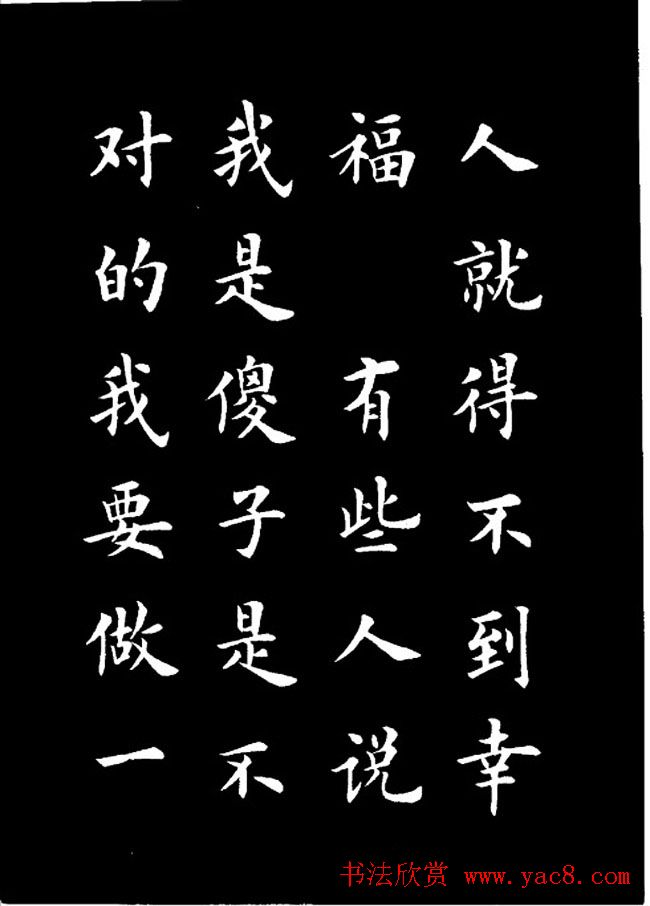 人就得不到幸
福 有些人说
我是傻子是不
对的我要做一
书法欣赏 www.yac8.com